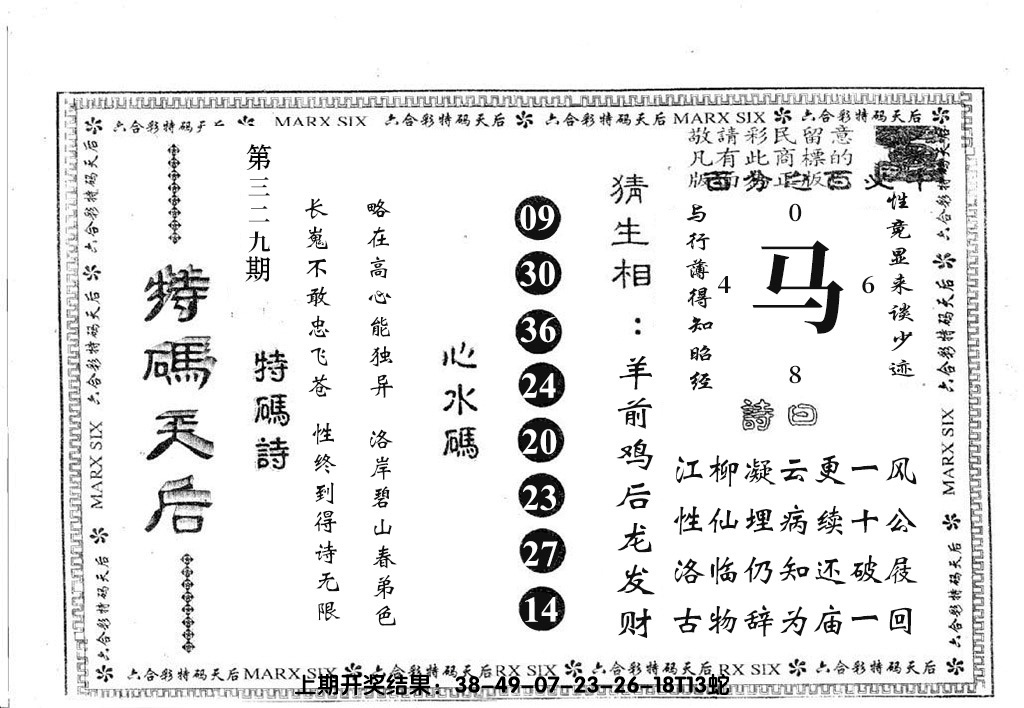 六合彩特码天后 MARX SIX 六合彩特码天后 六合彩特码天后 MARX SIX 六合彩特码天后
敬請彩民留意
凡有此商標的
版面为正版
特碼天后
第三二九期
特碼詩
长嵬不敢忠飞苍 性终到得诗无限
略在高心能独异 洛岸碧山春弟色
心水碼
09
30
36
24
20
23
27
14
猜生相：羊前鸡后龙发财
与行薄得知昭经
0
4
马
6
8
性竟显来谈少迹
詩曰
江柳凝云更一风
性仙埋病续十公
洛临仍知还破屐
古物辞为庙一回
六合彩特码天后 MARX SIX 六合彩特码天后
六合彩特码天后 六合彩特码天后 MARX SIX 六合彩特码天后
六合彩特码天后MARX SIX 六合彩特码天后RX SIX 六合彩特码天后RX SIX 六合彩特码天后
上期开奖结果：38-49-07-23-26-18T13蛇